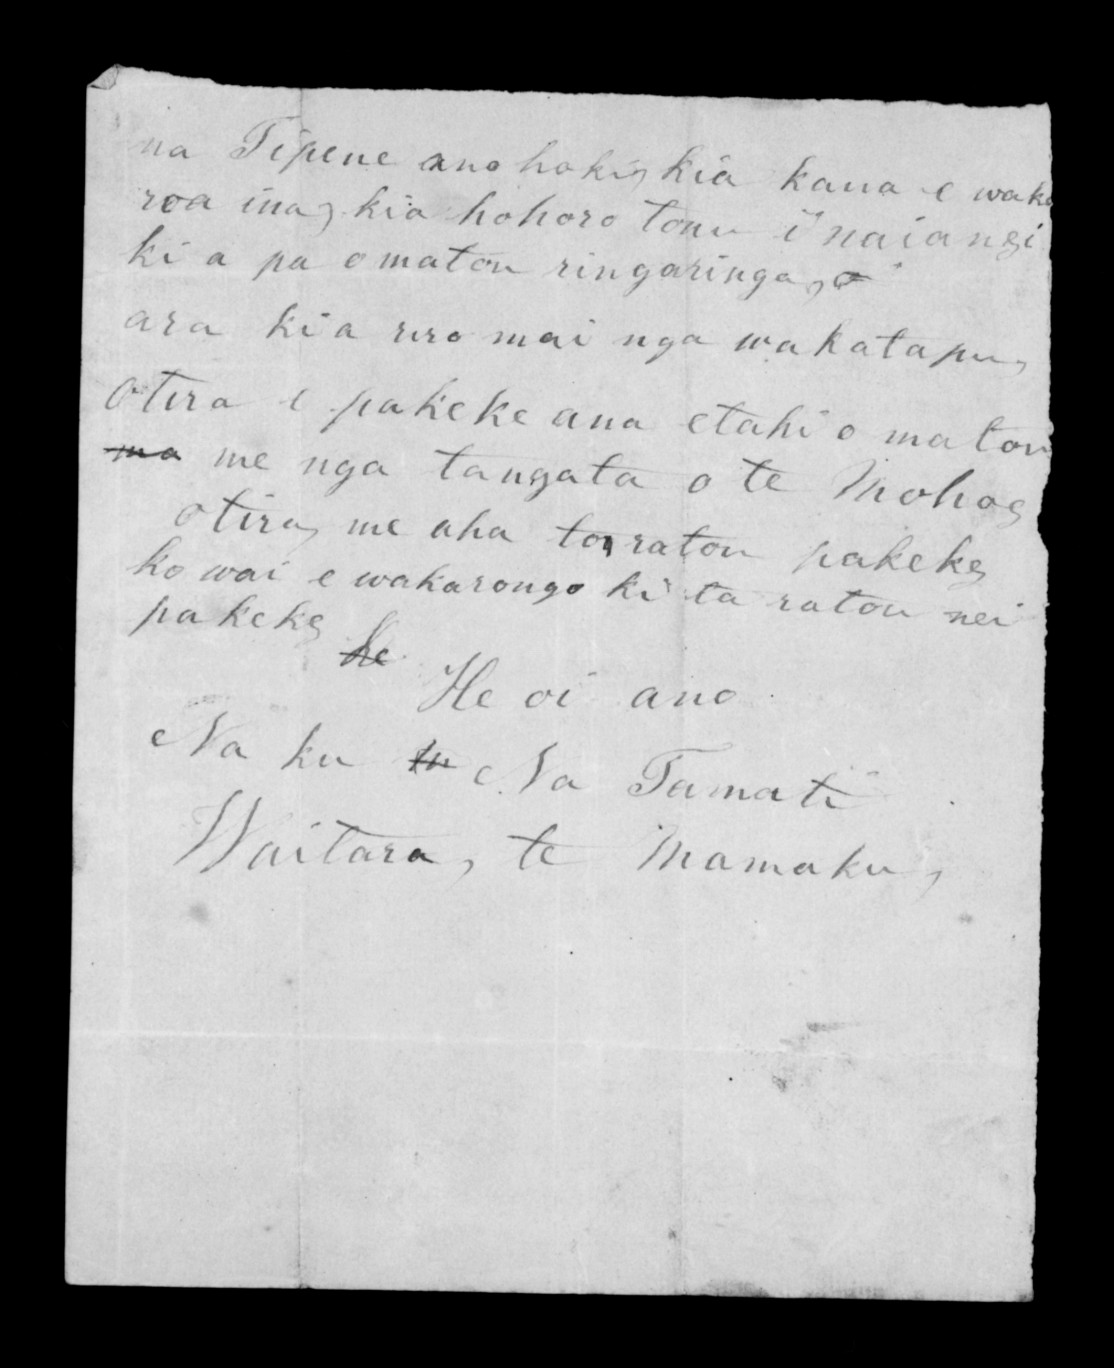 na Tipene ano hoki, kia kaua e waka
roa ina, kia hohoro tonu i naiangi
ki a pa o matou ringaringa,
ara kia riro mai nga wakatapu,
Otira e pakeke ana etahi o matou
ma me nga tangata o te Mohoe,
otira, me aha to ratou pakeke,
ko wai e wakarongo ki ta ratou nei
pakeke,
he
He oi ano
Na ku Na Tamati
Waitara, te Mamaku,